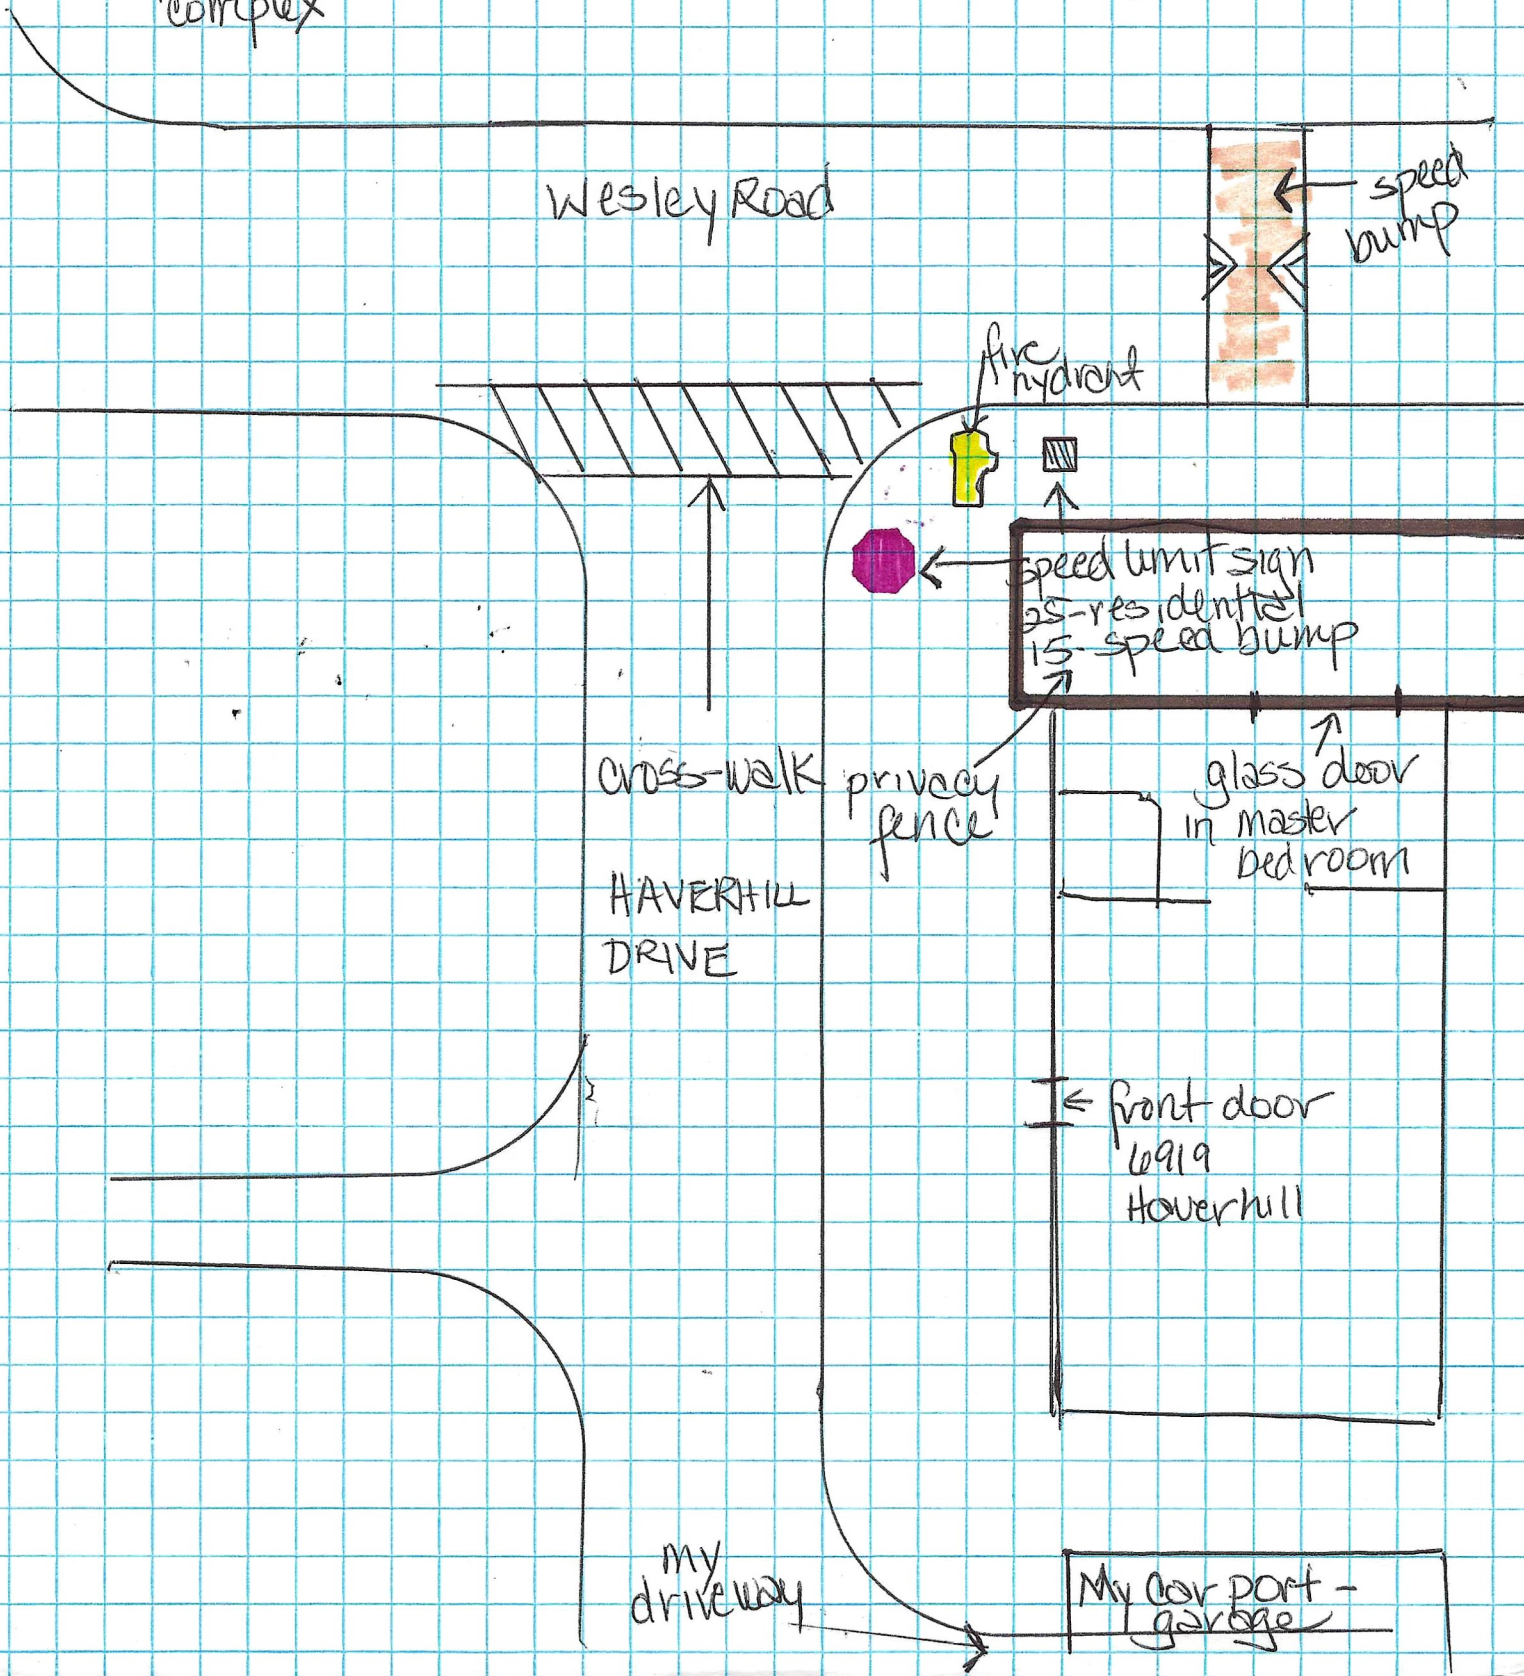 complex
Wesley Road
speed
bump
fire
hydrant
speed limit sign
25-residential
15-speed bump
cross-walk
privacy
fence
glass door
in master
bedroom
HAVERHILL
DRIVE
front door
6919
Haverhill
my
driveway
My car port-
garage